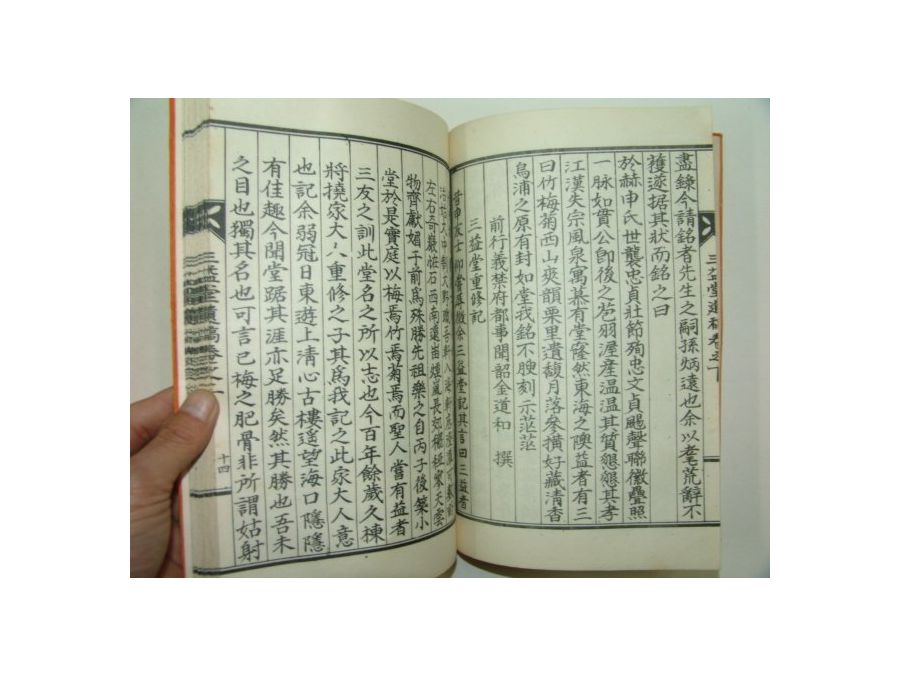 盡錄今請銘者先生之嗣孫炳遠也余以耄荒辭不
獲遂据其狀而銘之曰
於赫申氏世襲忠貞壯節殉忠文貞颺聲聯徽疊照
一脉如貫公卽後之芭羽渥産溫溫其質懇懇其孝
江漢失宗風泉寓慕有堂窿然東海之隩益者有三
曰竹梅菊西山爽韻栗里遺馥月落參橫好藏淸香
烏浦之原有封如堂我銘不腴刻示茫茫
前行義禁府都事聞韶金道和 撰
三益堂重修記
余三益堂記其言曰三益者
左右奇巖恠石西南遠
物齊獻媚于前爲殊勝先祖樂之自丙子後築小
堂於是實庭以梅焉竹焉菊焉而聖人嘗有益者
三友之訓此堂名之所以志也今百年餘歲久棟
將撓家大人重修之子其爲我記之此家大人意
也記余弱冠日東遊上淸心古樓遥望海口隱隱
有佳趣今聞堂踞其涯亦足勝矣然其勝也吾未
之目也獨其名也可言已梅之肥骨非所謂姑射
三益堂遺稿卷之下
三益堂遺稿卷之下
十四